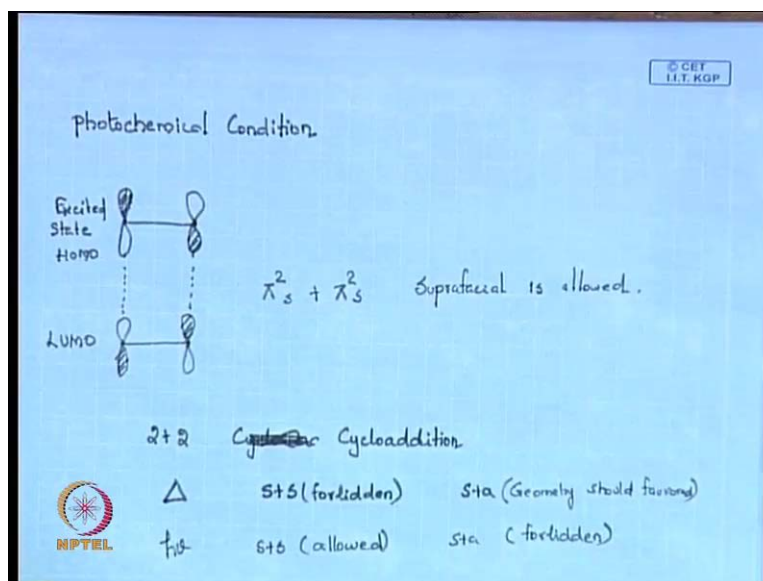 © CET
I.I.T. KGP
Photochemical Condition
Excited
State
HOMO
LUMO
π²s + π²s Suprafacial is allowed.
2+2 Cycloaddition
Δ s+s (forbidden) s+a (Geometry should favored)
hν s+s (allowed) s+a (forbidden)
NPTEL